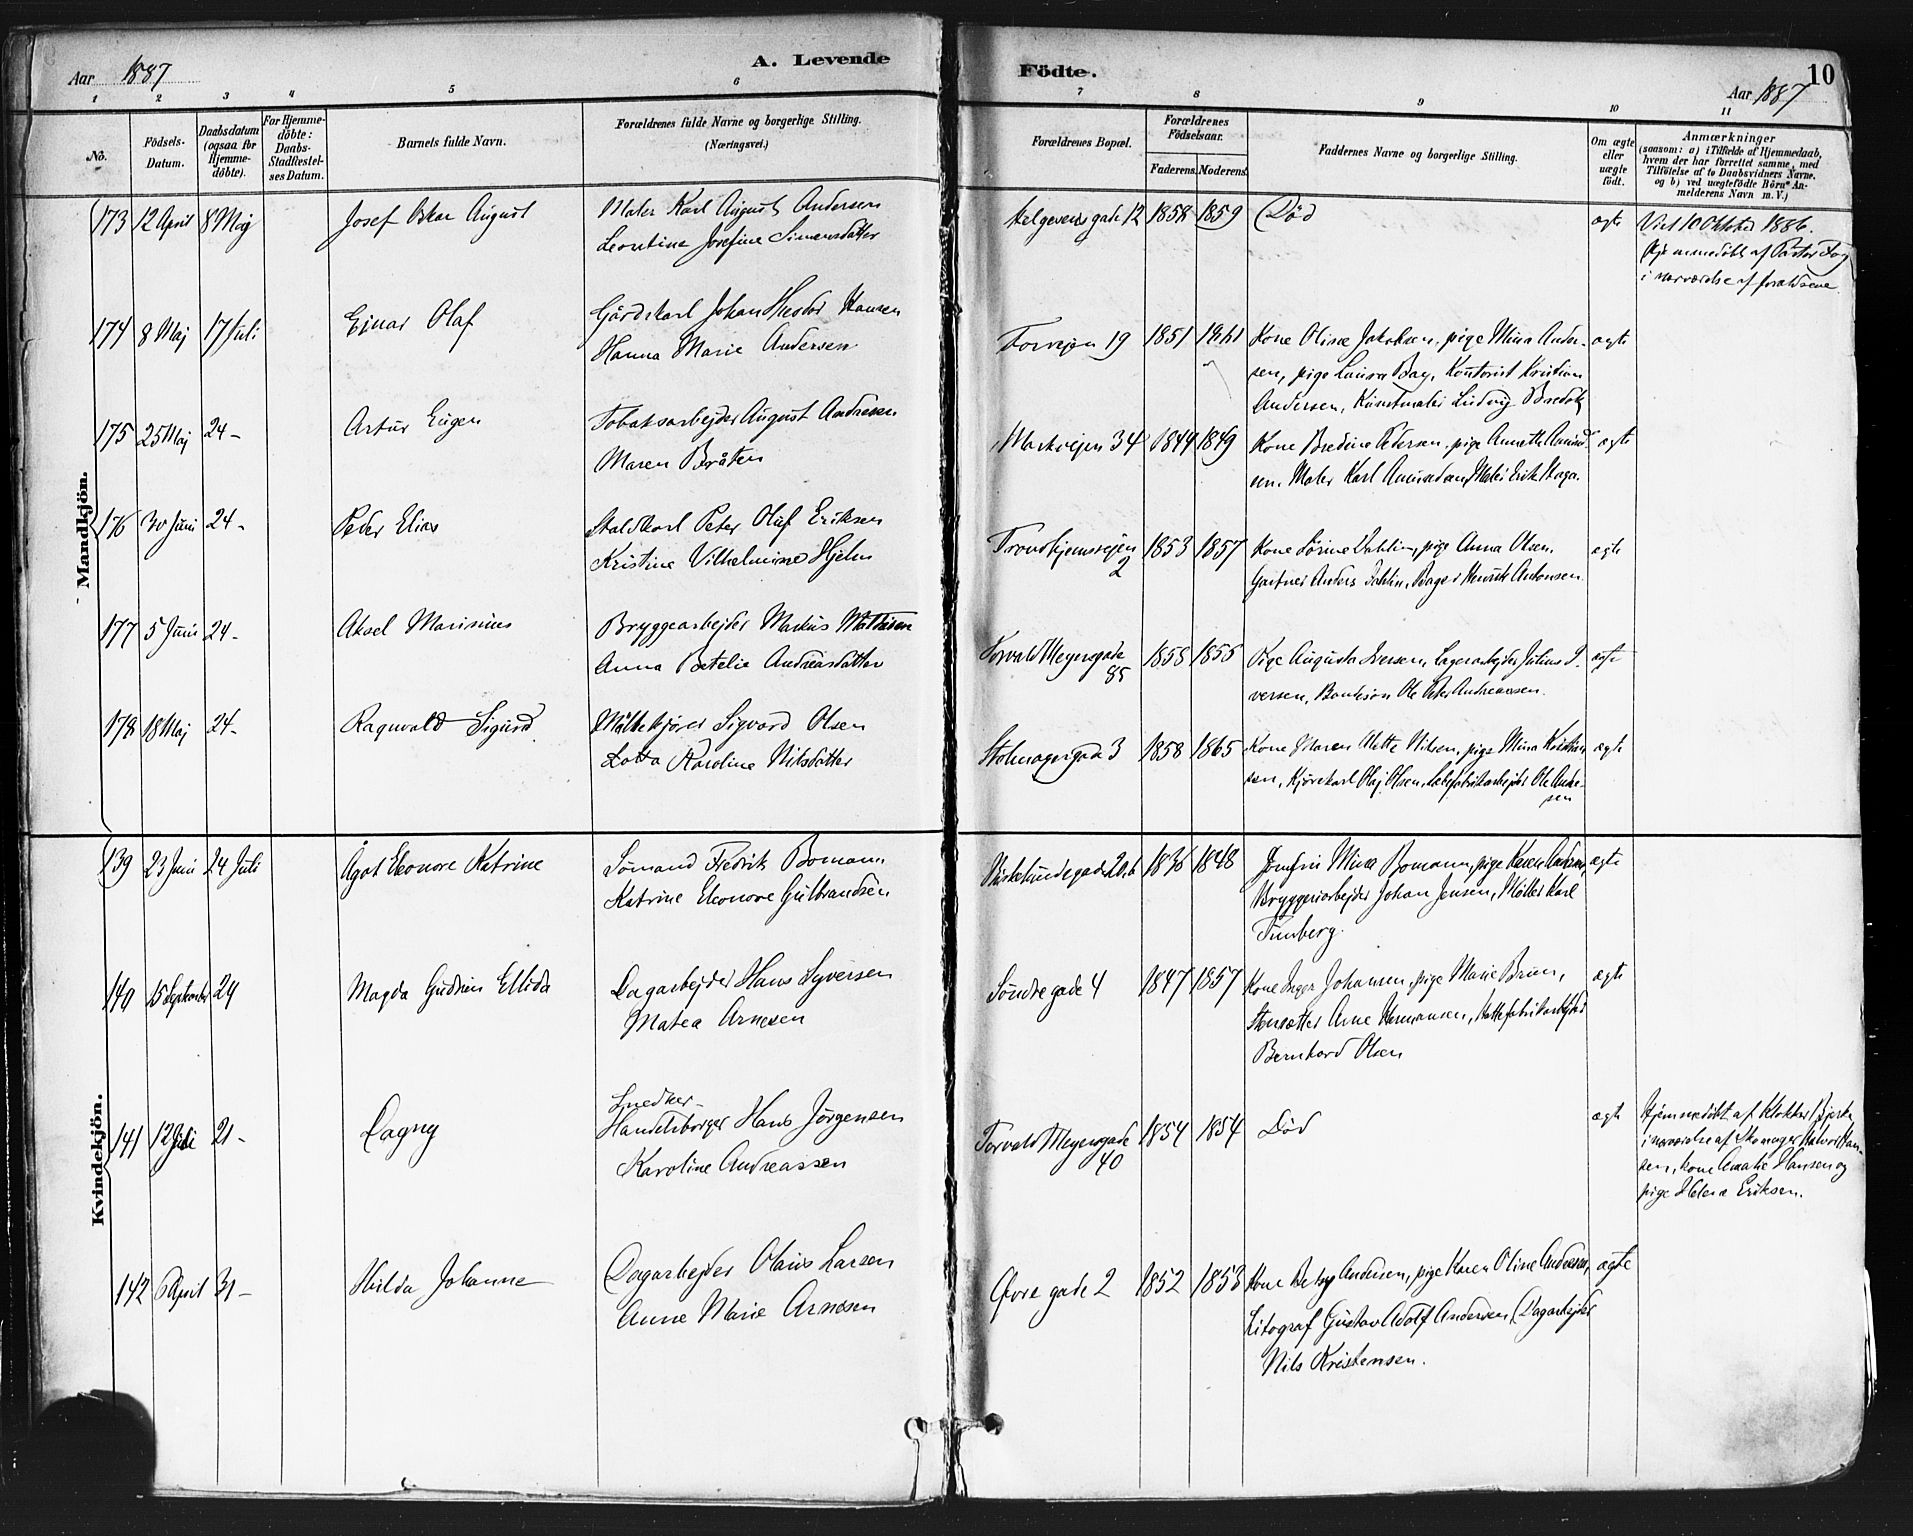 Aar 1887
A. Levende
Födte.
10
Aar 1887
1 2 3 4 5 6 7 8 9 10 11
No.
Födsels-Datum.
Daabsdatum (ogsaa for Hjemme-döbte).
For Hjemme-döbte: Daabs-Stadfestel-ses Datum.
Barnets fulde Navn.
Forældrenes fulde Navne og borgerlige Stilling.
(Næringsvei.)
Forældrenes Bopæl.
Forældrenes Födselsaar.
Faderens. Moderens.
Faddernes Navne og borgerlige Stilling.
Om ægte eller uægte födt.
Anmærkninger
(saasom: a) i Tilfælde af Hjemmedaab,
hvem der har forrettet samme, med
Tilföielse af to Daabsvidners Navne.
og b) ved uægtefödte Börns An-
melderens Navn m. V.)
Mandkjön.
173 12 April 8 Maj Josef Oskar August Maler Karl August Andersen Helgesensgade 12 1858 1859 Död ægte Viet 10 Oktober 1886.
Leontine Josefine Simensdatter Hjemmedöbt af Pastor Fog
i nærværelse af forældrene
174 8 Maj 17 Juli Ejnar Olaf Gårdskarl Johan Theodor Hansen Torvejen 19 1851 Kone Olise Jakobsen, pige Mina Ander- ægte
Hanna Marie Andersen sen, pige Laura Bay, Kontorist Kristian
Andersen, Kunstmaler Ludvig
175 25 Maj 24- Artur Eugen Tobaksarbejder August Andresen Markvejen 34 1844 1849 Kone Bredine Pedersen, pige Annette Amund- ægte
Maren Bråten sen. Maler Karl Amundsen, Maler Erik Haga.
176 30 Juni 24- Peder Elias Staldkarl Peter Oluf Eriksen Trondhjemsvejen 2 1853 1857 Kone Sörine Dahlin, pige Anna Olsen, ægte
Kristine Vilhelmine Hjelm Gartner Anders Dahlin, Bager Henrik Antonsen.
177 5 Juni 24- Aksel Marinius Bryggearbejder Markus Mathisen Torvald Meyersgade 85 1858 1855 Pige Augusta Iversen, Lagerarbejder Julius I- ægte
Anna Petelie Andreasdatter versen, Ole Peter Andreassen.
178 18 Maj 24- Ragnvald Sigurd Mælkekjörer Sigvard Olsen Stolmagergade 3 1858 1865 Kone Maren Alette Nilsen, pige Mina Kristian- ægte
Lotta Karoline Nilsdatter sen, Kjörekarl Olaj Olsen, Ole Andre-
sen
Kvindekjön.
139 23 Juni 24 Juli Ågot Eleonore Katrine Sömand Fredrik Bomann 1836 1848 Jomfru Mina Bomann, pige Karen Andersen, ægte
Katrine Eleonore Gulbrandsen Bryggeriarbejder Johan Jensen, Möller Karl
Tunberg.
140 15 September 24 Magda Gudrun Ellida Dagarbejder Hans Syversen Söndregade 4 1847 1857 Kone Inger Johansen, pige Marie Bruun, ægte
Matea Arnesen Stensætter Arne Hermansen, Hattefabrikarbejder
Bernhard Olsen
141 12 Juli 21- Dagny Snedker- Torvald Meyersgade 40 1854 1854 Död ægte Hjemmedöbt af Klokker Bjerke
Handelsborger Hans Jörgensen i nærværelse af Skomager Halvor Han-
Karoline Andreassen sen, kone Amalie Hansen og
pige Helene Eriksen.
142 6 April 31- Hilda Johanne Dagarbejder Olaus Larsen Övregade 2 1852 1853 Kone Betsy Andersen, pige Karen Oline Andersen, ægte
Anne Marie Arnesen Litograf Gustav Adolf Andersen, Dagarbejder
Nils Kristensen.